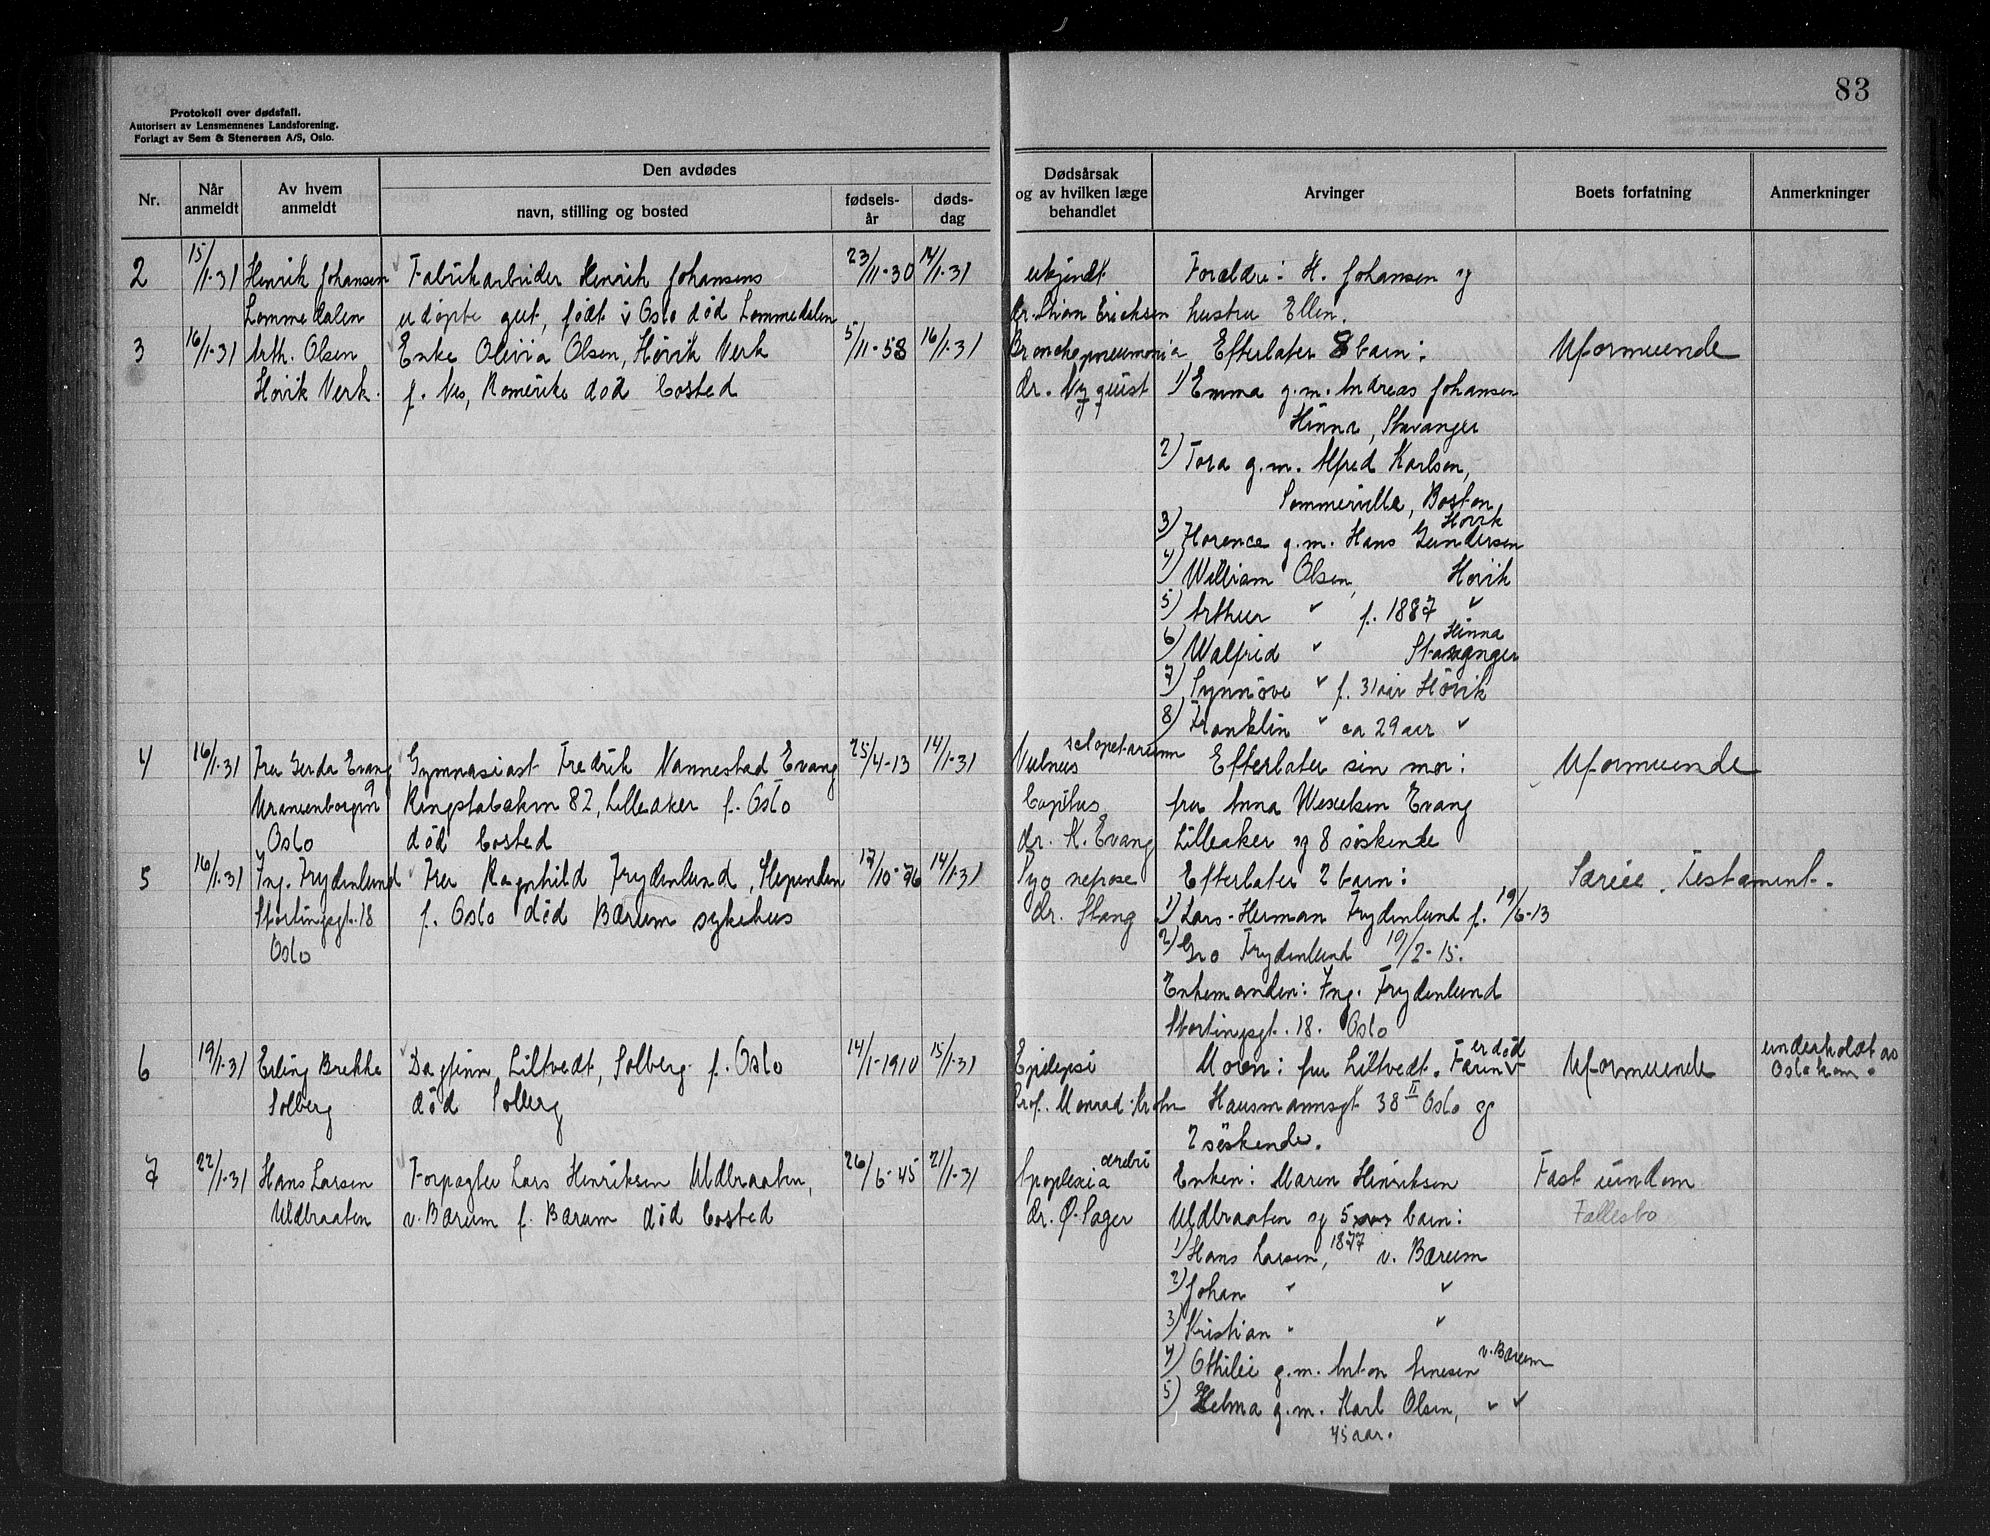 83
Protokoll over dødsfall.
Autorisert av Lensmennenes Landsforening.
Forlagt av Sem & Stenersen A/S, Oslo.
Nr.
Når anmeldt
Av hvem anmeldt
Den avdødes
navn, stilling og bosted
fødsels-år
døds-dag
Dødsårsak og av hvilken læge behandlet
Arvinger
Boets forfatning
Anmerkninger
2 15/1-31 Henrik Johansen Fabrikarbeider Henrik Johansens 23/11-30 14/1-31 ukjendt Forældre: H. Johansen og
Lommedalen udøpte gut, født i Oslo død Lommedalen dr. Erichsen hustru Ellen.
3 16/1-31 Arth. Olsen Enke Olivia Olsen, Høvik Verk 5/11-58 16/1-31 Bronchopneumonia Efterlater 8 barn: Uformuende
Høvik Verk. f. Nes, Romerike død bosted dr. Nyquist 1) Emma g.m. Andreas Johansen
Hinna, Stavanger
2) Tora g.m. Alfred Karlsen,
Sommerville, Boston
Høvik
3) Florence g.m. Hans Gundersen
4) William Olsen, Høvik
5) Arthur " f. 1887 "
Hinna
6) Walfrid " Stavanger
7) Synnöve " f. 31 aar Høvik
8) Franklin " ca 29 aar "
4 16/1-31 Fru Gerda Evang Gymnasiast Fredrik Nannestad Evang 25/4-13 14/1-31 Vulnus sclopetarium Efterlater sin mor: Uformuende
Uranienborgvn 9 Ringstabækvn 82, Lilleaker f. Oslo Capitus fru Anna Wexelsen Evang
Oslo død bosted dr. K. Evang Lilleaker og 8 söskende
5 16/1-31 Ing. Frydenlund Fru Ragnhild Frydenlund, Slependen 17/10-76 14/1-31 Pyo nefrose Efterlater 2 barn: Særeie. Testament.
Stortingsgt. 18 f. Oslo død Bærum sykehus dr. Stang 1) Lars-Herman Frydenlund f. 19/6-13
Oslo 2) Gro Frydenlund 19/2-15.
Enkemanden: Ing. Frydenlund
Stortingsgt. 18. Oslo
6 19/1-31 Erling Brekke Dagfinn Liltvedt, Solberg f. Oslo 14/1-1910 15/1-31 Epilepsi Moren: fru Liltvedt. Faren er død Uformuende underholdt av
Oslo kom.
Solberg død Solberg Prof. Monrad-Krohn Hausmannsgt 38 II Oslo og
2 søskende.
7 22/1-31 Hans Larsen Forpagter Lars Henriksen Uldbraaten, 26/6-45 21/1-31 Apoplexia cerebri Enken: Maren Henriksen Fast eiendom
Uldbraaten v. Bærum f. Bærum død bosted dr. Ø. Sager Uldbraaten og 5 barn: Fællesbo
1) Hans Larsen, 1877 v. Bærum
2) Johan " "
3) Kristian " "
4) Othilie g.m. Anton Arnesen v. Bærum
5) Helma g.m. Karl Olsen, " "
45 aar.